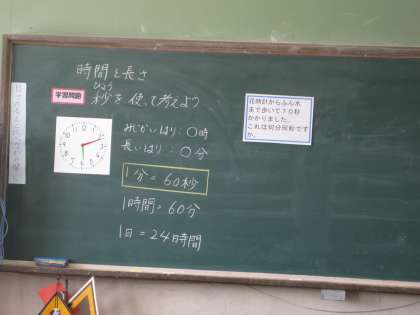 時間と長さ
学習問題
びょう
秒を使って考えよう
みじかいはり:〇時
長いはり:〇分
1分=60秒
1時間=60分
1日=24時間
花時計からふん水
まで歩いて70秒
かかりました。
これは何分何秒です
か。